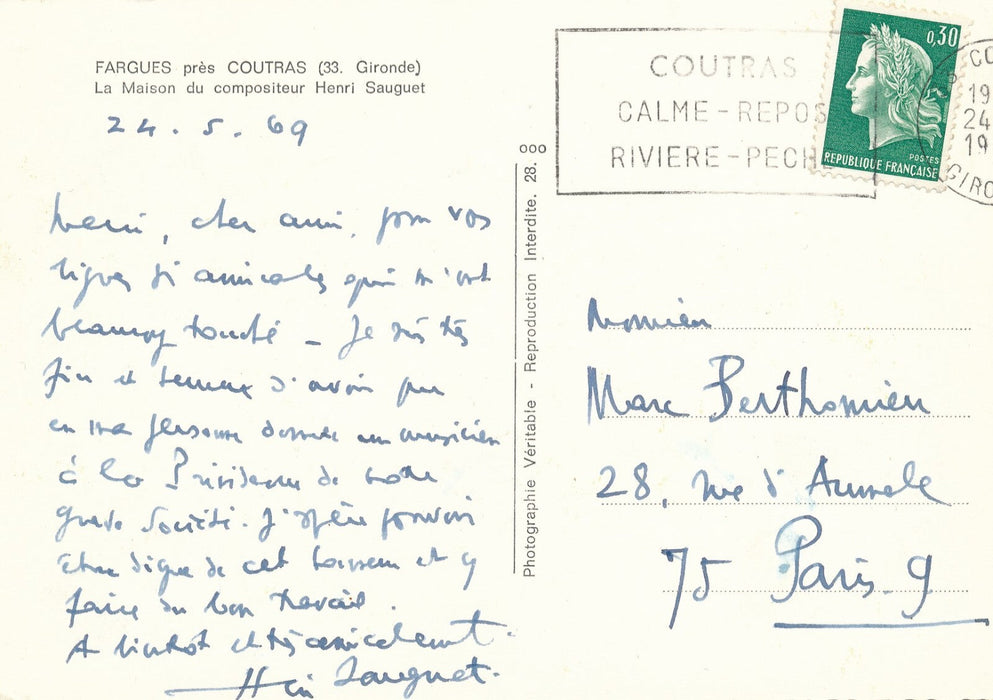 FARGUES près COUTRAS (33. Gironde)
La Maison du compositeur Henri Sauguet
24 . 5 . 69
Merci, cher ami, pour vos
lignes si amicales qui m'ont
beaucoup touché _ Je suis très
fier et heureux d'avoir pu
en ma personne donner un musicien
à la Présidence de notre
grande Société. J'espère pouvoir
être digne de cet honneur et y
faire du bon travail.
A bientôt et très amicalement.
Henri Sauguet.
Photographie Véritable - Reproduction Interdite. 28. 000
COUTRAS
CALME - REPOS
RIVIERE - PECHE
0,30
POSTES
REPUBLIQUE FRANÇAISE
CO
19
24
19
GIRO
Monsieur
Marc Berthomieu
28, rue d'Aumale
75 Paris_9